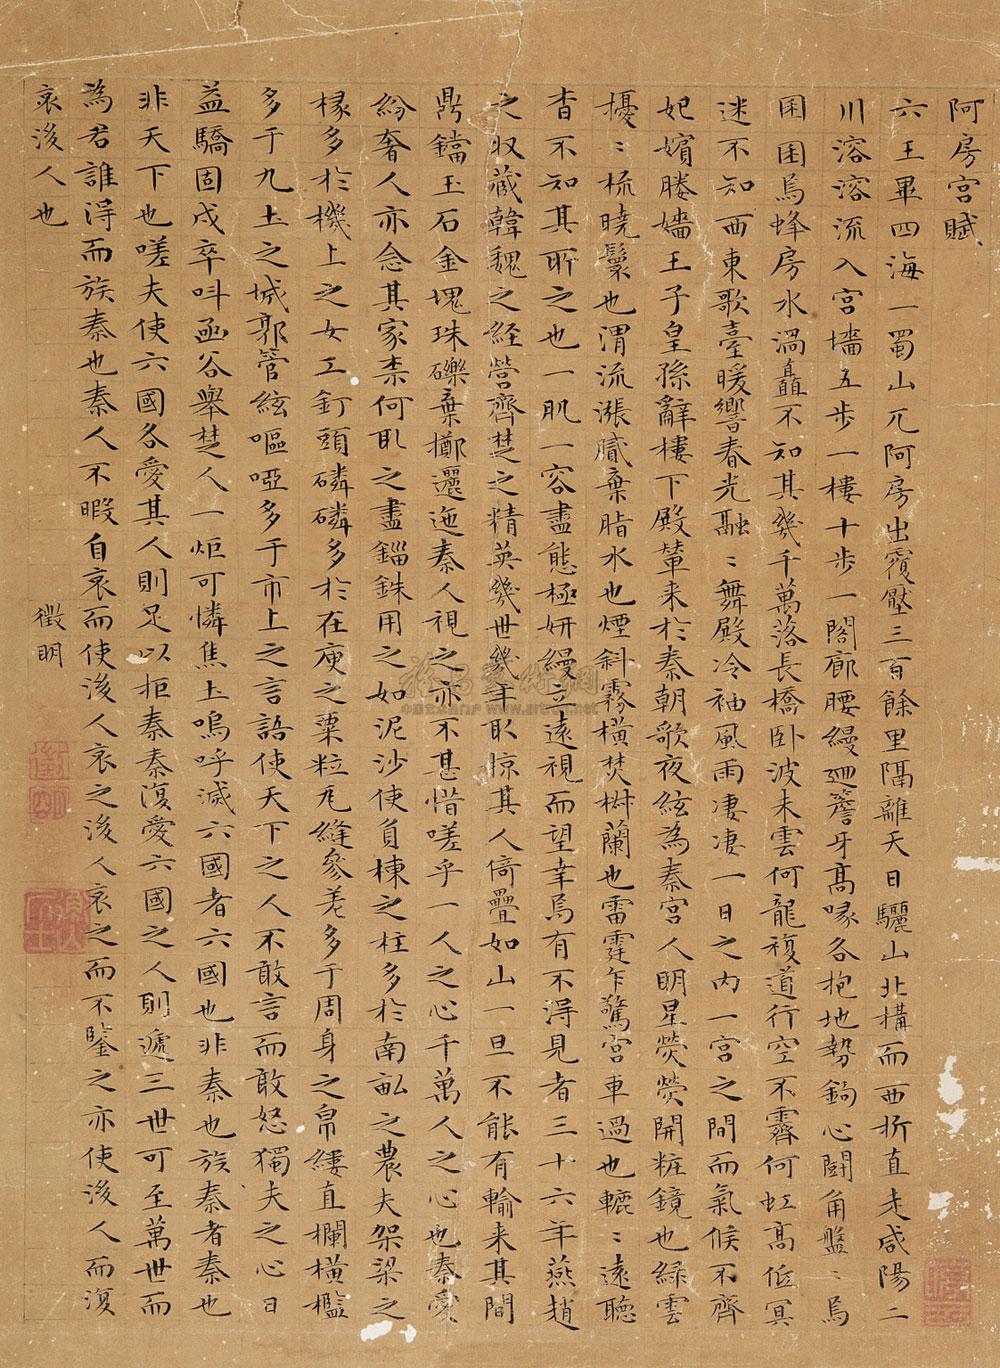 阿房宮賦
六王畢四海一蜀山兀阿房出覆壓三百餘里隔離天日驪山北構而西折直走咸陽二
川溶溶流入宮墻五步一樓十步一閣廊腰縵廻簷牙高喙各抱地勢鉤心鬬角盤〻焉
囷囷焉蜂房水渦矗不知其幾千萬落長橋卧波未雲何龍複道行空不霽何虹高低冥
迷不知西東歌臺暖響春光融〻舞殿冷袖風雨凄凄一日之內一宮之間而氣候不齊
妃嬪媵嬙王子皇孫辭樓下殿輦来於秦朝歌夜絃為秦宮人明星熒熒開粧鏡也緑雲
擾〻梳曉鬟也渭流漲膩棄脂水也煙斜霧橫焚椒蘭也雷霆乍驚宮車過也轆〻遠聽
杳不知其所之也一肌一容盡態極妍縵立遠視而望幸焉有不得見者三十六年燕趙
之収藏韓魏之経營齊楚之精英幾世幾年取掠其人倚疊如山一旦不能有輸来其間
鼎鐺玉石金塊珠礫棄擲邐迤秦人視之亦不甚惜嗟乎一人之心千萬人之心也秦愛
紛奢人亦念其家柰何取之盡錙銖用之如泥沙使負棟之柱多於南畝之農夫架梁之
椽多於機上之女工釘頭磷磷多於在庾之粟粒瓦縫參差多于周身之帛縷直欄橫檻
多于九土之城郭管絃嘔啞多于市上之言語使天下之人不敢言而敢怒獨夫之心日
益驕固戍卒呌函谷舉楚人一炬可憐焦土嗚呼滅六國者六國也非秦也族秦者秦也
非天下也嗟夫使六國各愛其人則足以拒秦秦復愛六國之人則遞三世可至萬世而
為君誰淂而族秦也秦人不暇自哀而使後人哀之後人哀之而不鑒之亦使後人而復
哀後人也
徵明